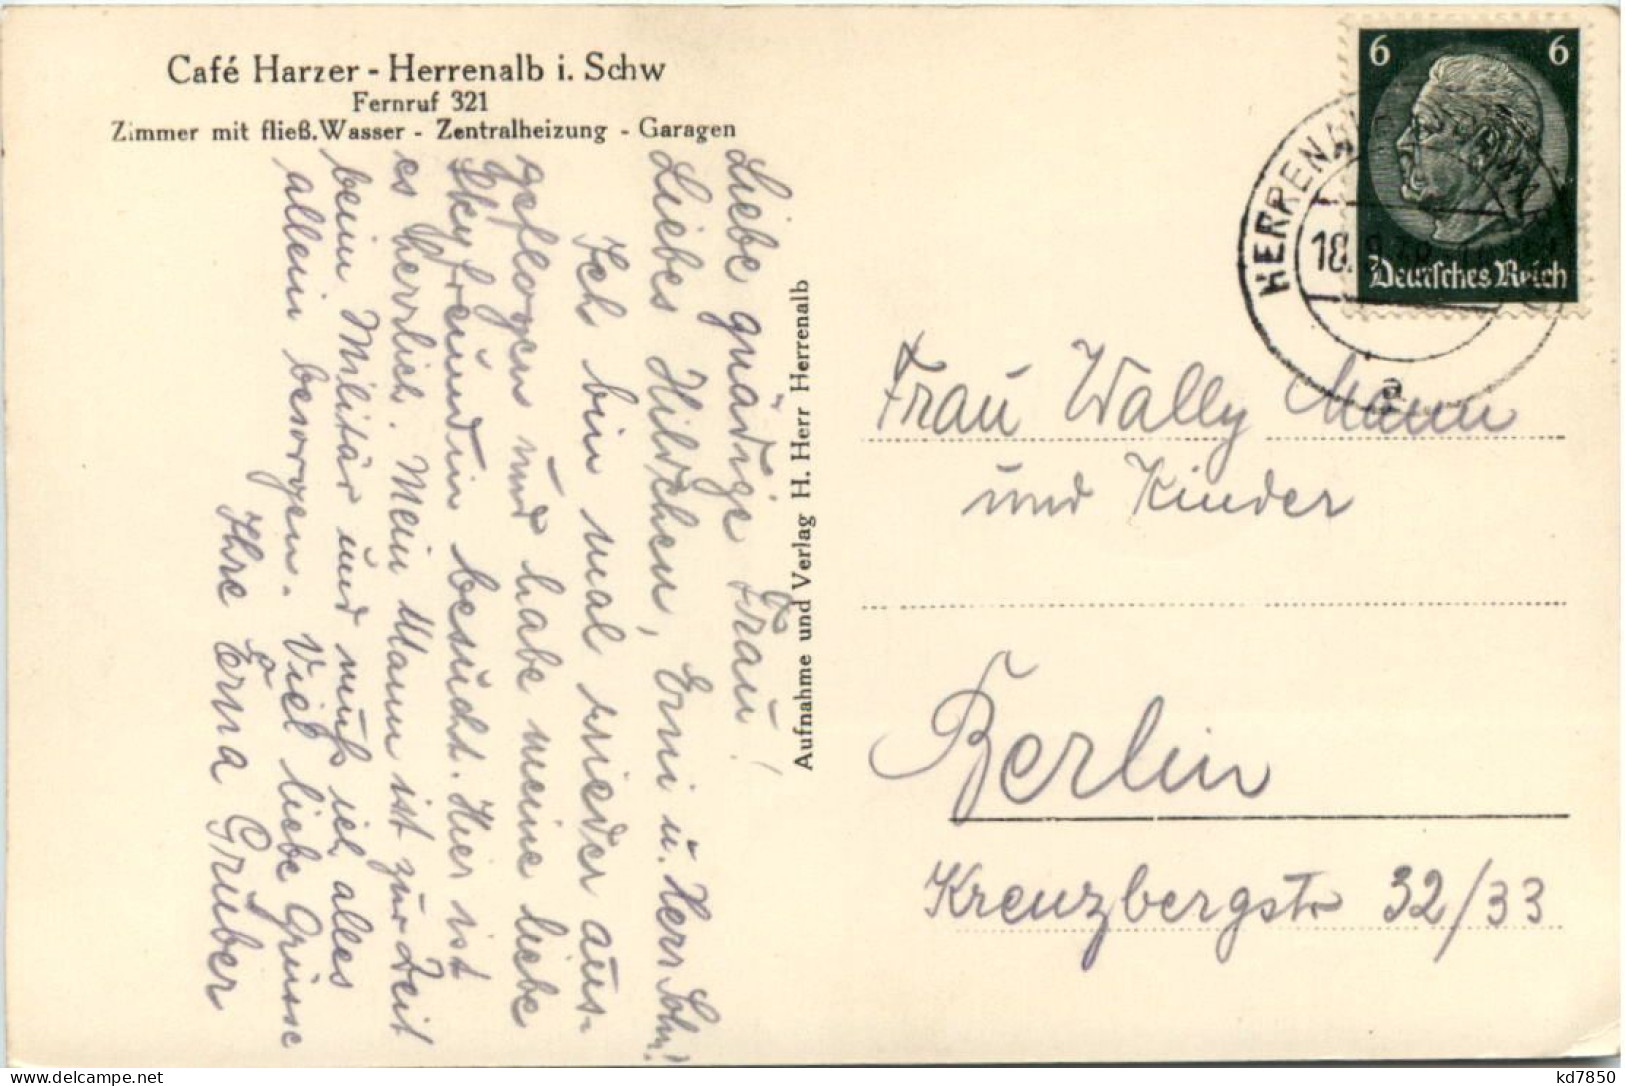 Café Harzer - Herrenalb i. Schw
Fernruf 321
Zimmer mit fließ. Wasser - Zentralheizung - Garagen
Liebe gnädige Frau!
Liebes Hildchen, Erni u. Herr Sohn!
Ich bin mal wieder aus-
geflogen und habe meine liebe
Skyfreundin besucht. Hier ist
es herrlich. Mein Mann ist zur Zeit
beim Militär und muß ich alles
allein besorgen. Viel liebe Grüsse
Ihre Erna Gruber
Aufnahme und Verlag H. Herr Herrenalb
6 6
Deutsches Reich
HERRENALB
18.9.
a
Frau Wally Mann
und Kinder
Berlin
Kreuzbergstr 32/33
kd7850